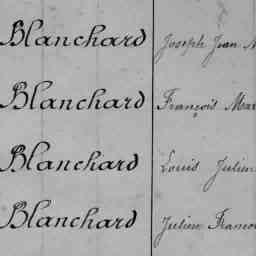 Blanchard Joseph Jean
Blanchard François Mar
Blanchard Louis Julien
Blanchard Julien Francoi